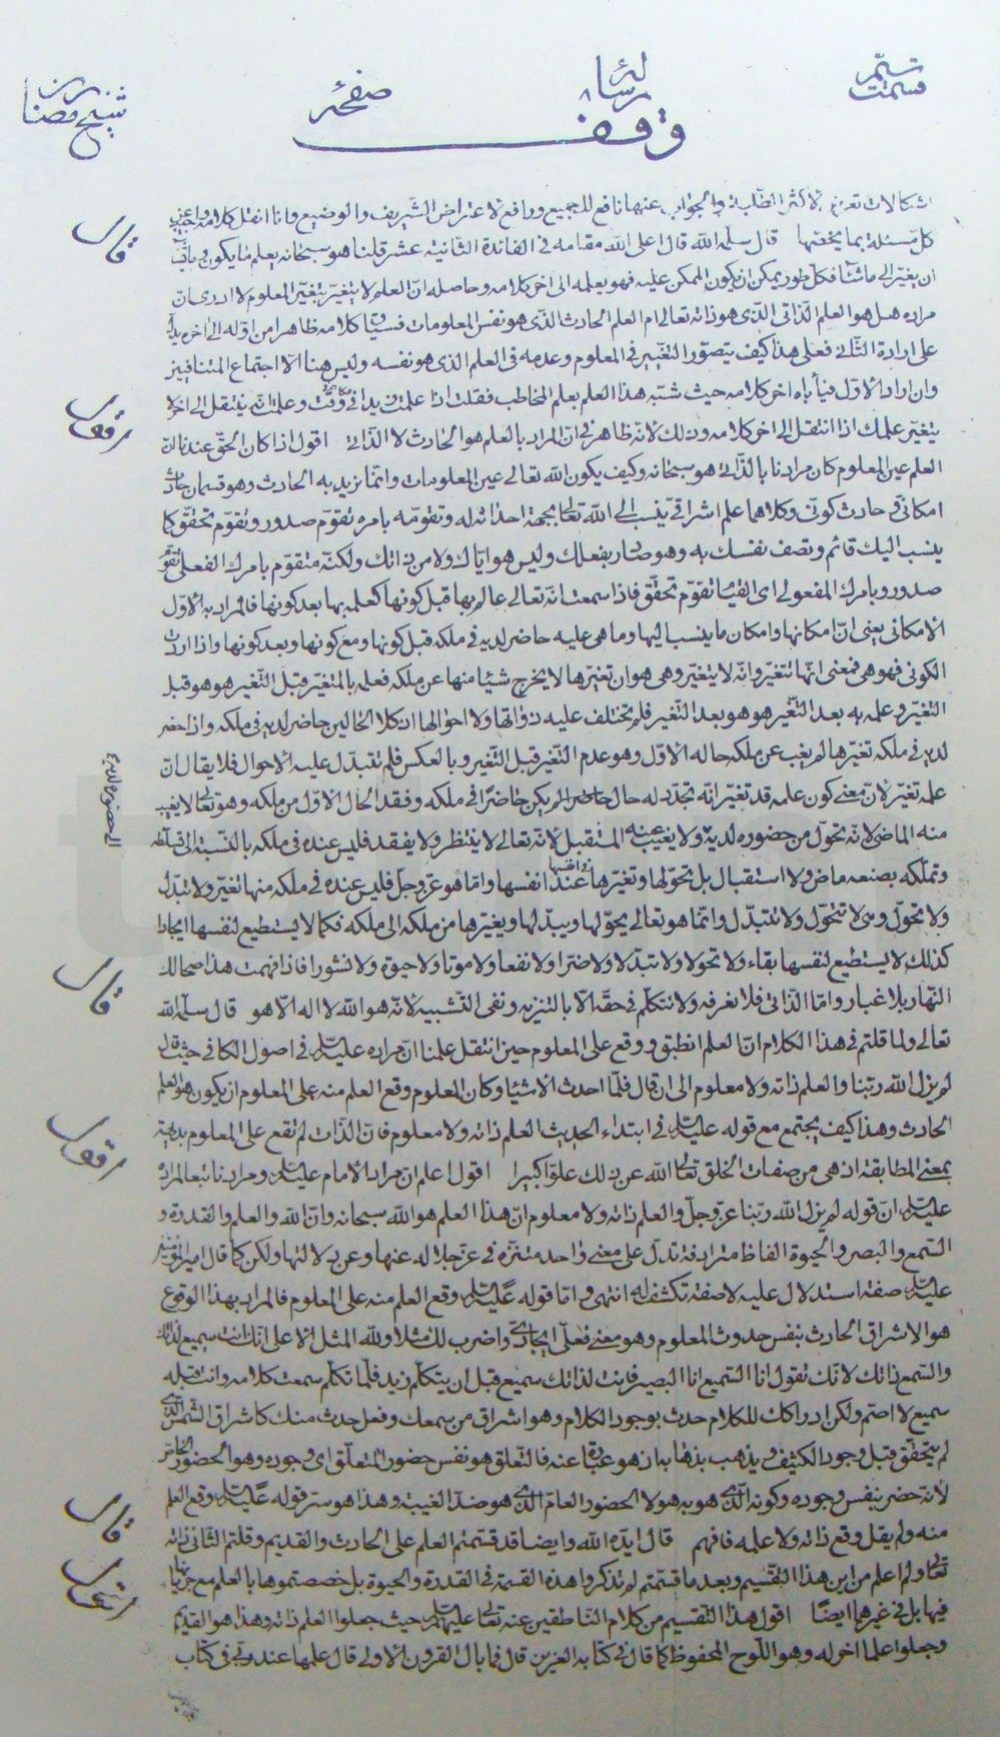 تتمّة قسمت
رسالهٔ
صفحهٔ
شیخ رمضان
وقف
اشكالات تعرض لاكثر الطلبة والجواب عنها نافع للجميع ورافع لاعتراض الشريف والوضيع وانا انقل كلامه واجيب عن
كل مسئلة بما يخصّها قال سلّمه الله قال اعلى الله مقامه فى الفائدة الثانية عشر قلنا هو سبحانه يعلم ما يكون
ان يغيّر الى ما شاء فكل طور يمكن ان يكون الممكن عليه فهو يعلمه الى اخر كلامه وحاصله انّ العلم لا يتغيّر بتغيّر المعلوم لا ادرى انّ
مراده هل هو العلم الذاتى الذى هو ذاته تعالى ام العلم الحادث الذى هو نفس المعلومات فسياق كلامه ظاهرا من اوّله الى اخره يدل
على ارادة الثانى فعلى هذا كيف يتصوّر التغيير فى المعلوم وعدمه فى العلم الذى هو نفسه وليس هنا الا اجتماع المتنافيين
وان اراد الاول فيأباه اخر كلامه حيث شبّه هذا العلم بعلم المخاطب فقلت اذا علمت زيدا فى وقت وعلمت انّه ينتقل الى اخر لا
يتغير علمك اذا انتقل الى اخر كلامه وذلك لانّه ظاهر فى انّ المراد بالعلم هو الحادث لا الذاتى اقول اذا كان الحق عندنا انّ
العلم عين المعلوم كان مرادنا بالذاتى هو سبحانه وكيف يكون الله تعالى عين المعلومات وانّما نريد به الحادث وهو قسمان حادث
امكانى وحادث كونى وكلاهما علم اشراقى ينسب الى الله تعالى بجهة احداثه له وتقوّمه بامره تقوّم صدور وتقوّم تحقق كما
ينسب اليك قائم وتصف نفسك به وهو صادر بفعلك وليس هو ايّاك ولا من ذاتك ولكنّه متقوّم بامرك الفعلى تقوّم
صدور وبامرك المفعولى اى القيام تقوّم تحقق فاذا سمعت انّه تعالى عالم بها قبل كونها كعلمه بها بعد كونها فالمراد به الاوّل
الامكانى يعنى انّ امكانها وامكان ما ينسب اليها وما هى عليه حاضر لديه فى ملكه قبل كونها ومع كونها وبعد كونها واذا اردت
الكونى فهو هى فمعنى انّها تتغيّر وانّه لا يتغيّر وهى هو ان تغيّرها لا يخرج شيئا منها عن ملكه فعلمه بالمتغيّر قبل التّغير هو هو قبل
التغيّر وعلمه به بعد التّغير هو هو بعد التّغير فلم تختلف عليه ذواتها ولا احوالها اذ كلا الحالين حاضر لديه فى ملكه واذا حضر
لديه فى ملكه تغيّرها لم يغب عن ملكه حاله الاوّل وهو عدم التّغير قبل التّغير وبالعكس فلم تتبدّل عليه الاحوال فلا يقال انّ
علمه تغيّر لانّ معنى كون علمه قد تغيّر انّه تجدّد له حال حاضر لم يكن حاضرا فى ملكه وفقد الحال الاوّل من ملكه وهو تعالى لا يغيب
منه الماضى لانّه تحوّل من حضوره لديه ولا يغيب عنه المستقبل لانّه تعالى لا ينتظر ولا يفقد فليس عنده فى ملكه بالنّسبة الى
وتملّكه بصنعه ماض ولا استقبال بل تحوّلها وتغيّرها عند انفسها وامّا هو عزّ وجلّ فليس عنده فى ملكه منها تغيّر ولا تبدّل
ولا تحوّل وهى لا تتحوّل ولا تتبدّل وانّما هو تعالى يحوّلها ويبدّلها ويغيّرها من ملكه الى ملكه فكما لا يستطيع لنفسها ايجادا
كذلك لا يستطيع لنفسها بقاء ولا تحولا ولا تبدّلا ولا ضرّا ولا نفعا ولا موتا ولا حيوة ولا نشورا فاذا فهمت هذا صحا لك
النّهار بلا غبار وامّا الذّاتى فلا نعرفه ولا نتكلّم فى حقّه الّا بالتنزيه ونفى التّشبيه لانّه هو الله لا اله الّا هو قال سلّمه الله
تعالى ولما قلتم فى هذا الكلام انّ العلم انطبق ووقع على المعلوم حين انتقل علمنا انّ مراده عليه السلام فى اصول الكافى حيث قال
لم يزل الله ربّنا والعلم ذاته ولا معلوم الى ان قال فلمّا احدث الاشياء وكان المعلوم وقع العلم منه على المعلوم ان يكون هو العلم
الحادث وهذا كيف يجتمع مع قوله عليه السلام فى ابتداء الحديث العلم ذاته ولا معلوم فانّ الذّات لم تقع على المعلوم بديهة
بمعنى المطابقة اذ هى من صفات الخلق تعالى الله عن ذلك علوّا كبيرا اقول اعلم ان مراد الامام عليه السلام ومرادنا تبعا لمراده
عليه السلام انّ قوله لم يزل الله ربّنا عزّ وجلّ والعلم ذاته ولا معلوم انّ هذا العلم هو الله سبحانه وانّ الله والعلم والقدرة و
السّمع والبصر والحيوة الفاظ مترادفة تدلّ على معنى واحد متنزّه فى عزّ جلاله عنها وعن دلالتها ولكن كما قال امير المؤمنين
عليه السلام صفة استدلال عليه لا صفة تكشف له انتهى وامّا قوله عليه السلام وقع العلم منه على المعلوم فالمراد بهذا الوقوع
هو الاشراق الحادث بنفس حدوث المعلوم وهو معنى فعلى ايجادى واضرب لك مثلا ولله المثل الاعلى انّك انت سميع لذاتك
والسّمع ذاتك لانّك تقول انا السّميع انا البصير فانت لذاتك سميع قبل ان يتكلّم زيد فلمّا تكلّم سمعت كلامه وانت قبله
سميع لا اصمّ ولكن ادراكك للكلام حدث بوجود الكلام وهو اشراق من سمعك وفعل حدث منك كاشراق الشّمس الّذى
لم يتحقّق قبل وجود الكثيف ويذهب بذهابه اذ هو عبارة عنه فالتّعلق هو نفس حضور المتعلّق اى وجوده وهو الحضور الخاصّ
لانّه حضر بنفس وجوده وكونه الّذى هو به هو لا الحضور العامّ الّذى هو ضدّ الغيبة وهذا هو سرّ قوله عليه السلام وقع العلم
منه ولم يقل وقع ذاته ولا علمه فافهم قال ايّده الله وايضا قد قسّمتم العلم على الحادث والقديم وقلتم الثّانى ذاته
تعالى ولم اعلم من اين هذا التّقسيم وبعد ما قسّمتم لم تذكروا هذه القسمة فى القدرة والحيوة بل خصصتموها بالعلم مع جريانها
فيها بل فى غيرهما ايضا اقول هذا التّقسيم من كلام النّاطقين عنه تعالى عليهم السلام حيث جعلوا العلم ذاته وهذا هو القديم
وجعلوا علما اخر له وهو اللّوح المحفوظ كما قال فى كتابه العزيز قال فما بال القرون الاولى قال علمها عند ربّى فى كتاب
قال
اقول
قال
اقول
قال
اقول